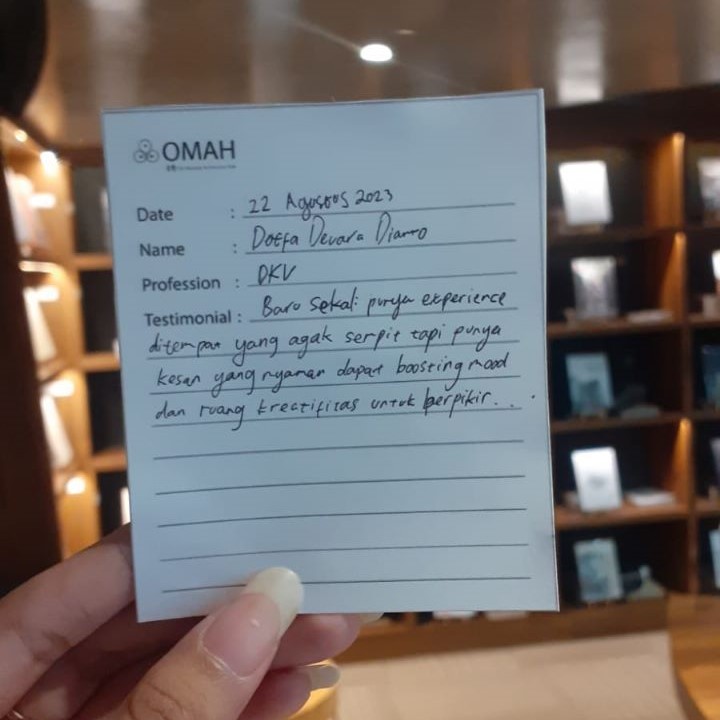 OMAH
Date : 22 Agustus 2023
Name : Daffa Devara Dianto
Profession : DKV
Testimonial : Baru sekali punya experience
ditempat yang agak sempit tapi punya
kesan yang nyaman dapat boosting mood
dan ruang kreatifitas untuk berpikir...